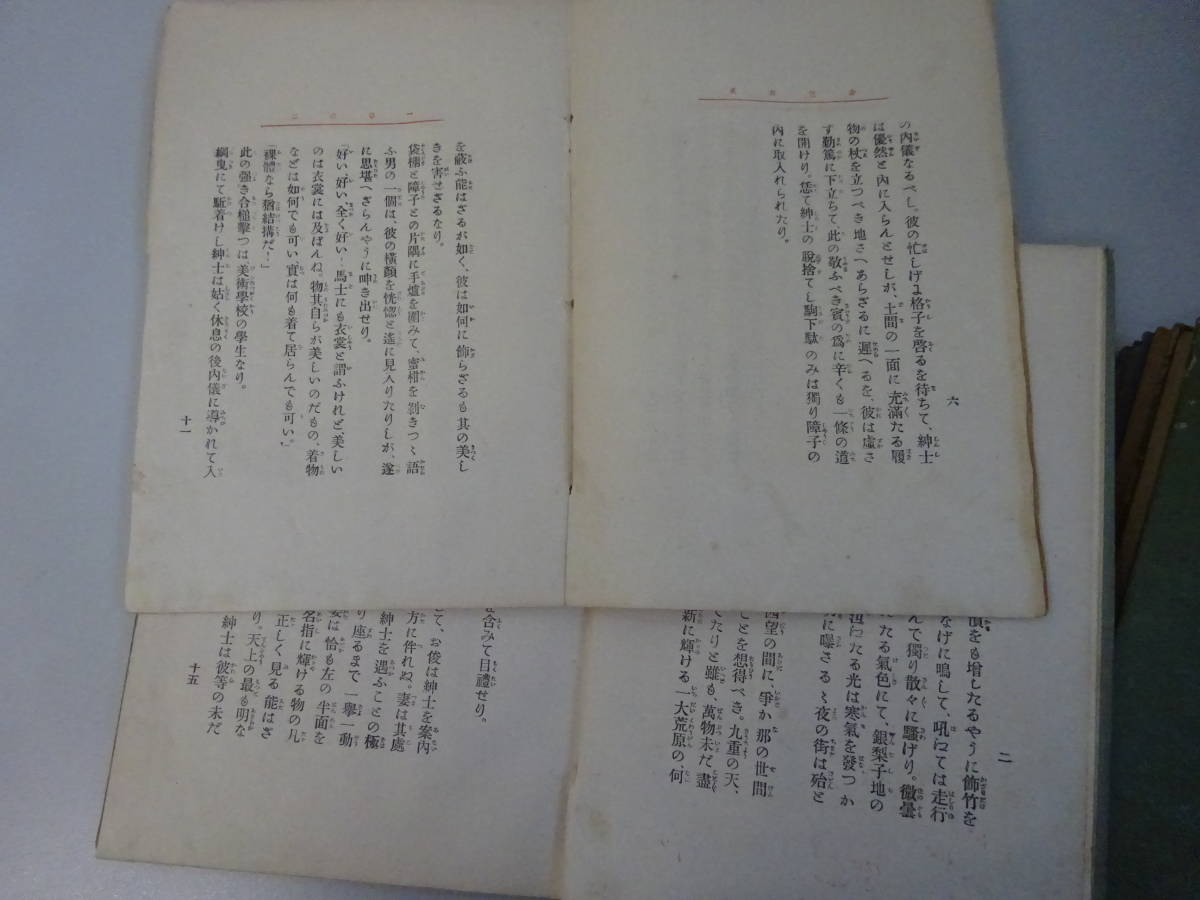 六
の内儀なるべし。彼の忙しげに格子を啓るを待ちて、紳士
は優然と内に入らんとせしが、土間の一面に充滿たる履
物の杖を立つべき地さへあらざるに遲へるを、彼は虛さ
ず勤篤に下立ちて此の敬ふべき賓の爲に辛くも一條の道
を開けり。恁て紳士の脫捨てし駒下駄のみは獨り障子の
內に取入れられたり。
を蔽ふ能はざるが如く、彼は如何に飾らざるも其の美し
きを害せざるなり。
袋棚と障子との片隅に手爐を圍みて、蜜柑を剝きつゝ語
ふ男の一個は、彼の橫顏を恍惚と遙に見入りたりしが、遂
に思堪へざらんやうに呻き出せり。
「好い、好い、全く好い!馬士にも衣裳と謂ふけれど、美しい
のは衣裳には及ばんね。物其自らが美しいのだもの、着物
などは如何でも可い、實は何も着て居らんでも可い。」
「裸體なら猶結構だ!」
此の强き合槌擊つは美術學校の學生なり。
綱曳にて駈着けし紳士は姑く休息の後內儀に導かれて入
十一
二
をも增したるやうに飾竹を
なげに鳴して、吼にては走行
んで獨り散々に騷げり。微曇
たる氣色にて、銀梨子地の
泣にたる光は寒氣を發つか
に曝さるゝ夜の街は殆と
四望の間に、爭か那の世間
ことを想得べき。九重の天、
てたりと雖も、萬物未だ盡
新に輝ける一大荒原の、何
含みて目禮せり。
て、お俊は紳士を案內
方に伴れぬ。妻は其處
紳士を遇ふことの極
り座るまで一擧一動
妻は恰も左の半面を
名指に輝ける物の凡
正しく見る能はざ
り。天上の最も明な
紳士は彼等の未だ
十五